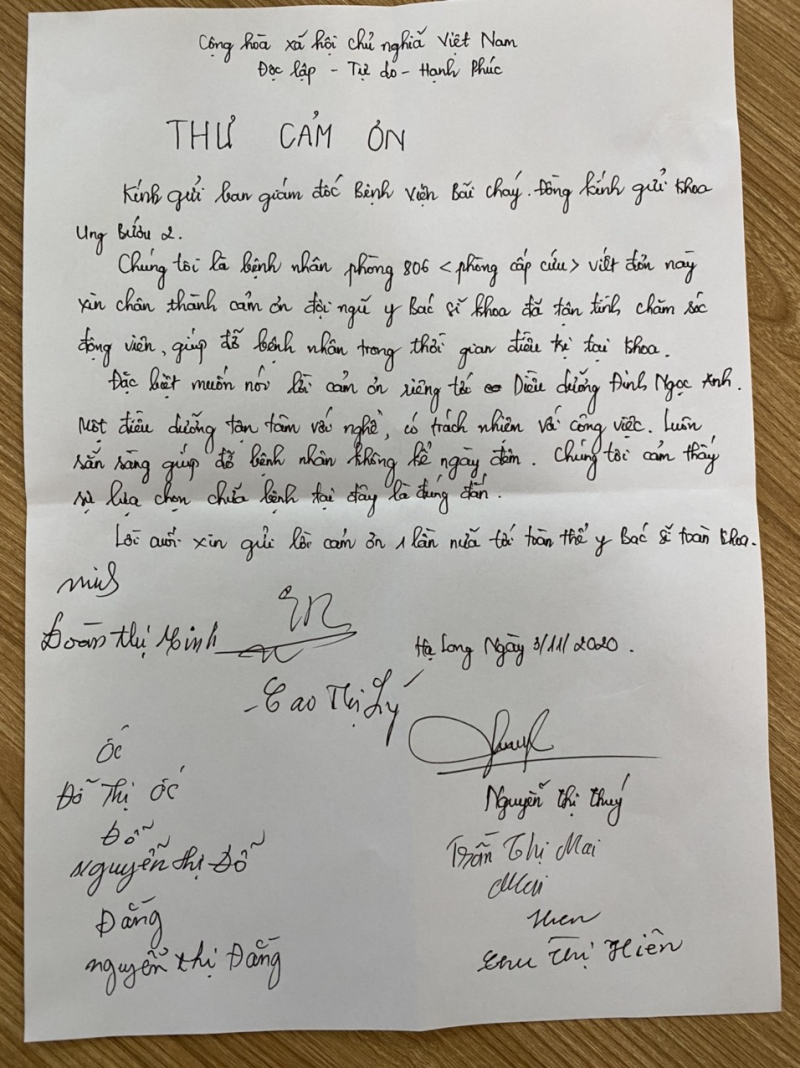 Cộng hòa xã hội chủ nghĩa Việt Nam
Độc lập - Tự do - Hạnh Phúc
THƯ CẢM ƠN
Kính gửi ban giám đốc Bệnh viện Bãi cháy. Đồng kính gửi khoa
Ung Bướu 2.
Chúng tôi là bệnh nhân phòng 806 < phòng cấp cứu > viết đơn này
xin chân thành cảm ơn đội ngũ y Bác sĩ khoa đã tận tình chăm sóc
động viên, giúp đỡ bệnh nhân trong thời gian điều trị tại khoa.
Đặc biệt muốn nói lời cảm ơn riêng tới Điều dưỡng Đinh Ngọc Anh.
Một điều dưỡng tận tâm với nghề, có trách nhiêm với công việc. Luôn
sẵn sàng giúp đỡ bệnh nhân không kể ngày đêm. Chúng tôi cảm thấy
sự lựa chọn chữa bệnh tại đây là đúng đắn.
Lời cuối xin gửi lời cảm ơn 1 lần nữa tới toàn thể y Bác sĩ toàn khoa.
Minh
Đoàn Thị Minh
Hạ Long Ngày 3/11/2020.
- Cao Thị Lý
ốc
Đỗ Thị ốc
Nguyễn thị thuý
Đỗ
Nguyễn thị Đỗ
Trần Thị Mai
Mai
Đắng
Hien
nguyễn thị Đắng
Thị Hiên